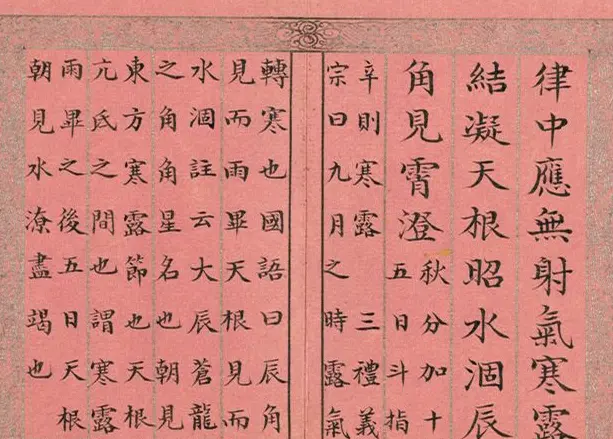 律中應無射氣寒露
結凝天根昭水涸辰
角見霄澄
秋分加十
五日斗指
辛則寒露 三禮義
宗曰九月之時露氣
轉寒也國語曰辰角
見而雨畢天根見而
水涸註云大辰蒼龍
之角角星名也朝見
東方寒露節也天根
亢氐之間也謂寒露
雨畢之後五日天根
朝見水潦盡竭也